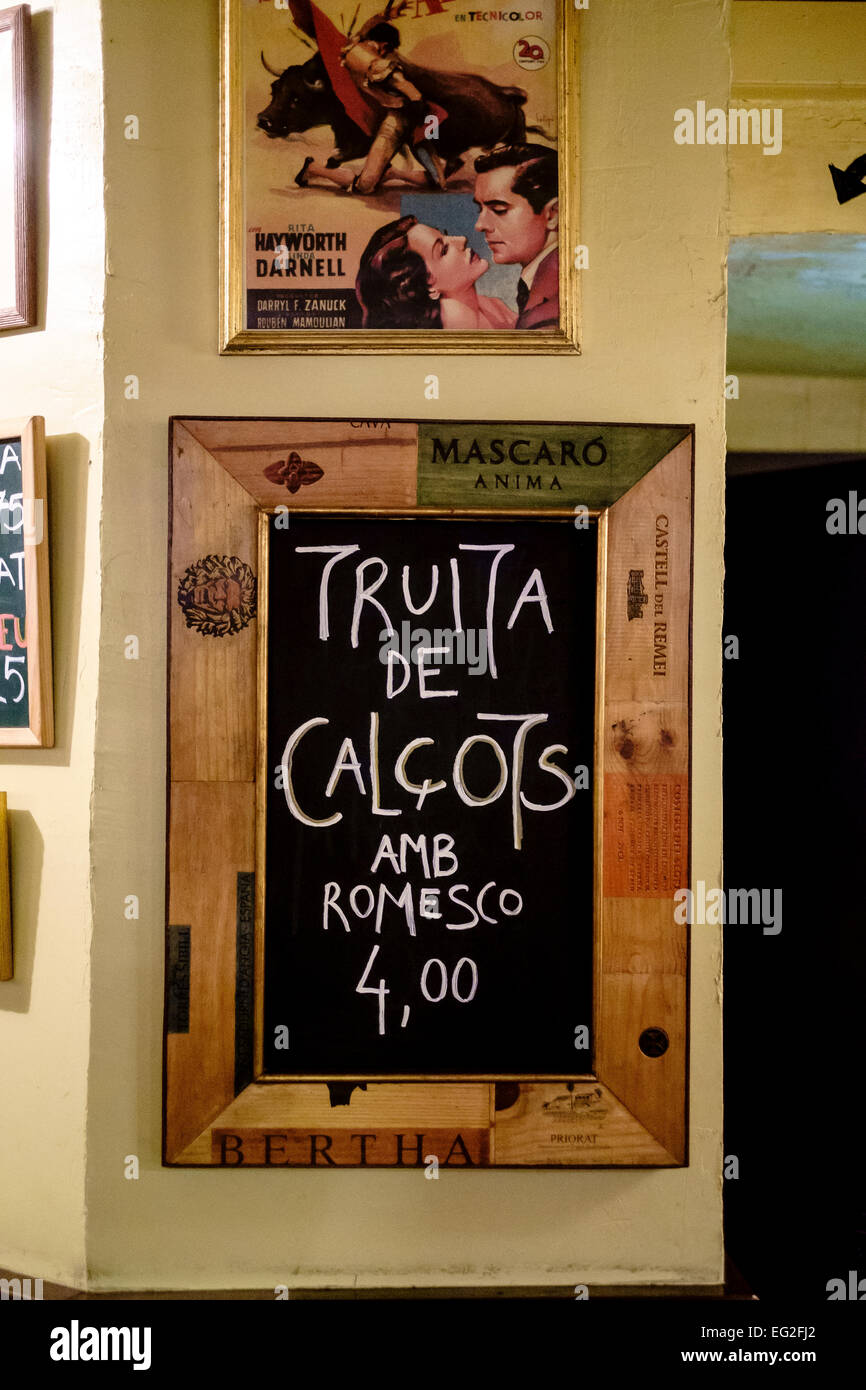 EN TECNICOLOR
20
con
RITA
HAYWORTH
LINDA
DARNELL
DARRYL F. ZANUCK
ROUBEN MAMOULIAN
A
75
AT
EU
15
CAVA
MASCARÓ
ANIMA
CASTELL DEL REMEI
TRUITA
DE
CALÇOTS
AMB
ROMESCO
4,00
BERTHA
PRIORAT
COSTERS DEL SEGRE
alamy
Image ID: E2GFJ2
www.alamy.com